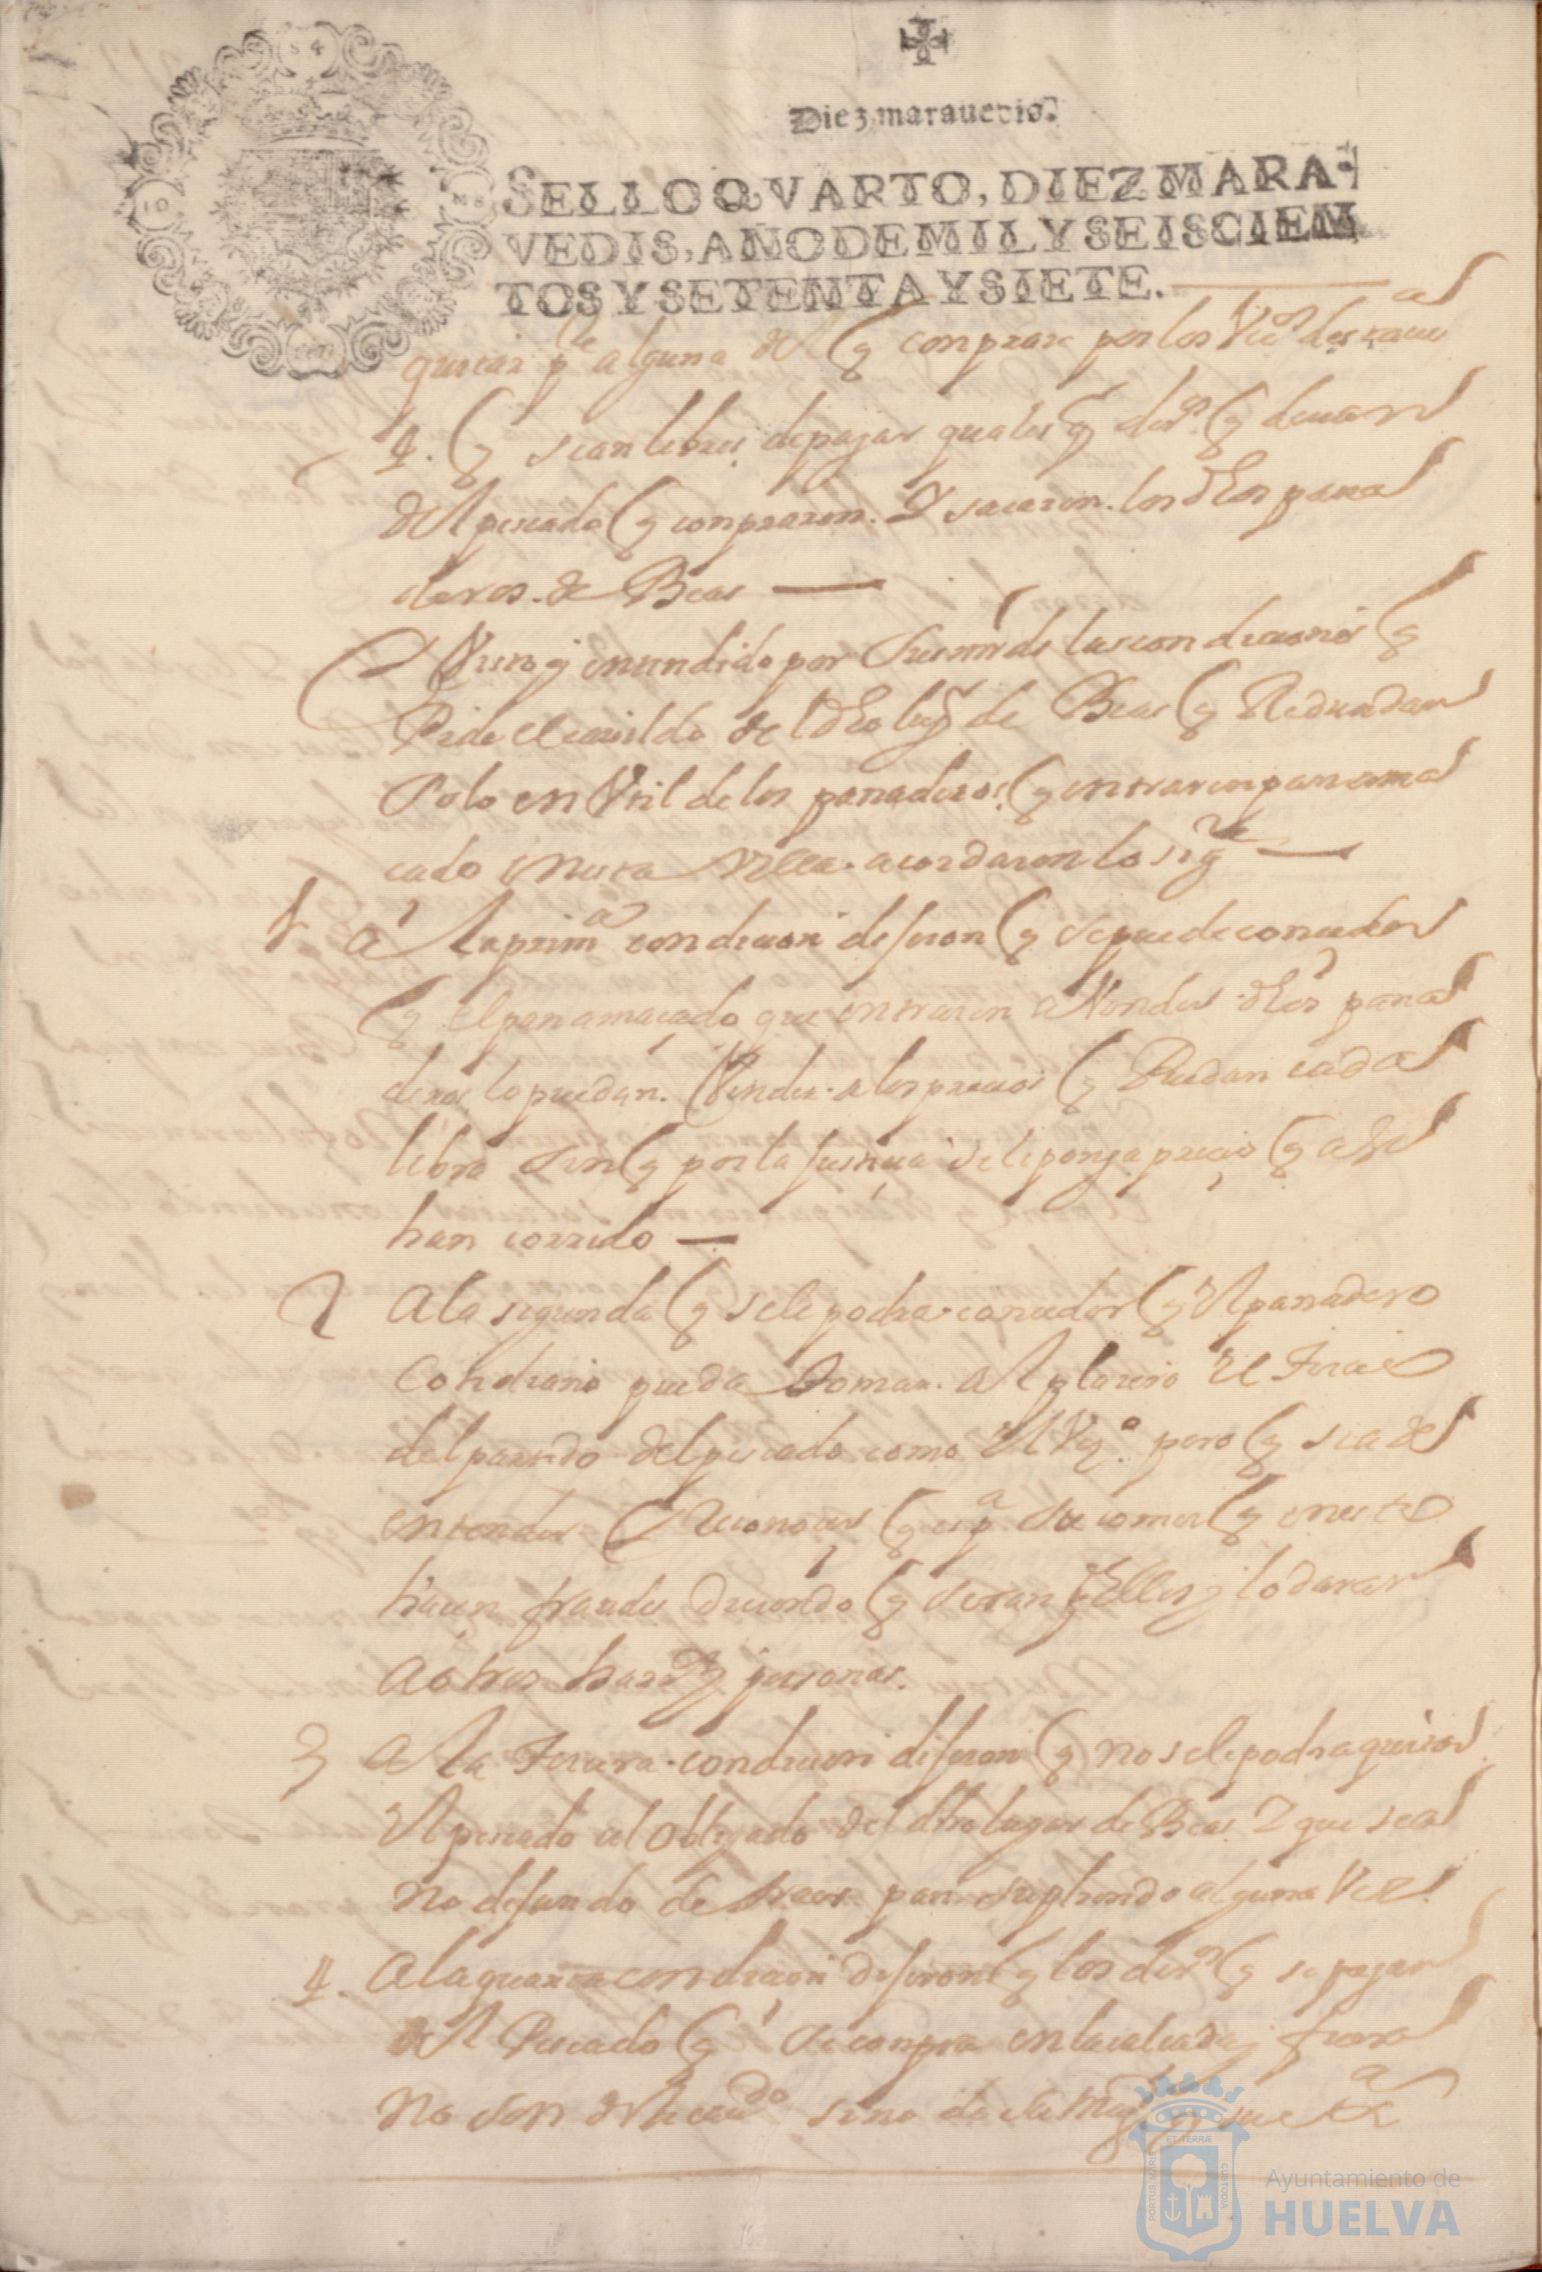 Diez maravedis.
SELLO QVARTO, DIEZ MARA-
VEDIS, AÑO DE MIL Y SEISCIEN
TOS Y SETENTA Y SIETE.
quitar pte alguna del q conprare por los Vezos desta va
4. q sean libres de pagar quales q dros. q devan
del pescado q conpraren. Y sacaren. los dhos pana
deros. de Beas
Visto y entendido por sus mrds las condiciones q
Pide el cavildo del dho lugr de Beas q Redundan
solo en Util de los panaderos q entraren pan ama
cado en esta Villa. acordaron lo sigte
1 a la prima condicion dijeron q se puede conceder
q el pan amaçado que entraren a Vender dhos pana
deros lo puedan. Vender. a los precios q Puedan cada
libra sin q por la justicia se le ponga precio q asi
han corrido
2 a la segunda q se le podra conceder q el panadero
Cotidiano pueda tomar. al plaserio el tercio
del parado del pescado como el Vzo. pero q sea de
entender Y Reconoçer q es pa su comer q en esto
haçen fraudes diciendo q seran pa Ellos y lo daran
a otras personas.
3 a la tercera condicion dijeron q no se le podra quitar
el pescado al obligado del dho lugar de Beas Y que sea
no dejando de traer pan supliendo alguna Vez.
4. a la quarta condicion dijeron q los dros q se pagan
del Pescado q se conpra en la calçada y fuera
no son del cavdo sino de su
ET TERRÆ
PORTUS MARIS
CUSTODIA
Ayuntamiento de
HUELVA